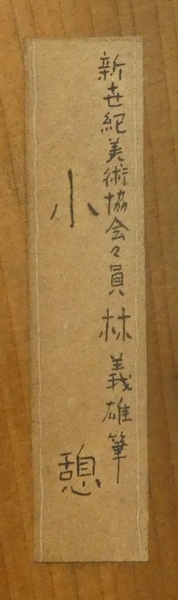 新世紀美術協会々員 林義雄筆
小憩